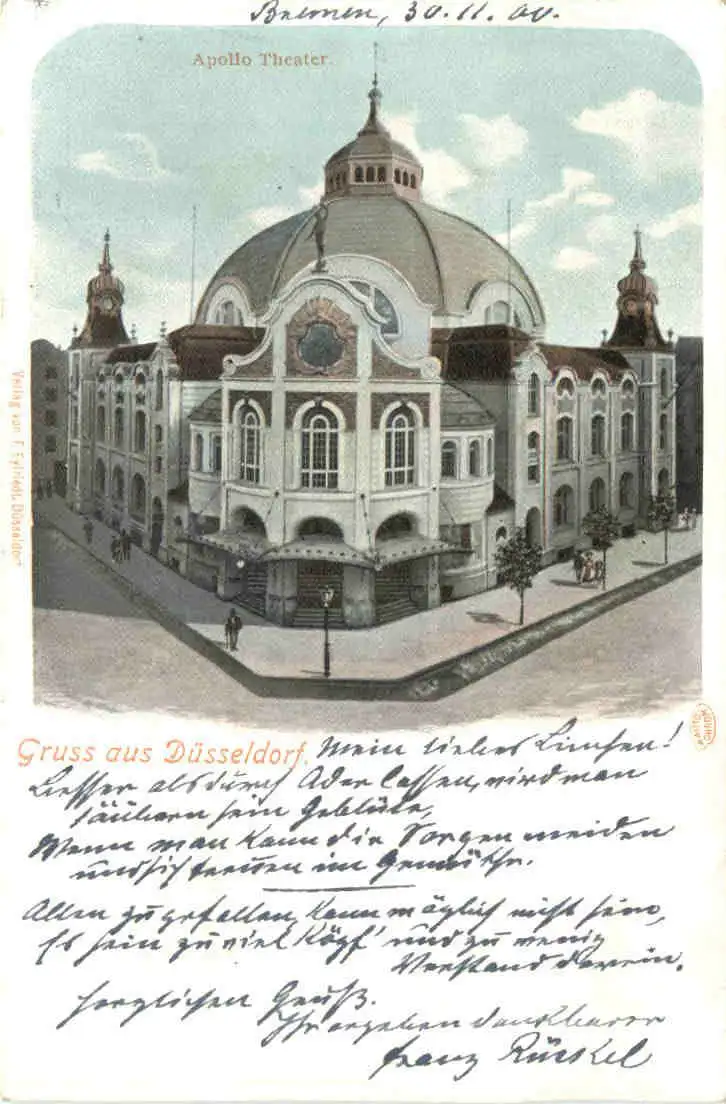 Bremen, 30.11.00.
Apollo Theater.
Verlag von F. Eyfriedt, Düsseldorf
AUTOCHROM
Gruss aus Düsseldorf. Mein liebes
Besser als durch Ader lassen, wird man
säubern sein Geblüte,
Wenn man kann die Sorgen meiden
und sich freuen im Gemüthe.
Allen zu gefallen, kann möglich nicht sein,
Es sein zu viel Köpf' und zu wenig
Verstand darein.
Herzlichen Gruß.
Ihr ergeben dankbarer
Franz Rückel